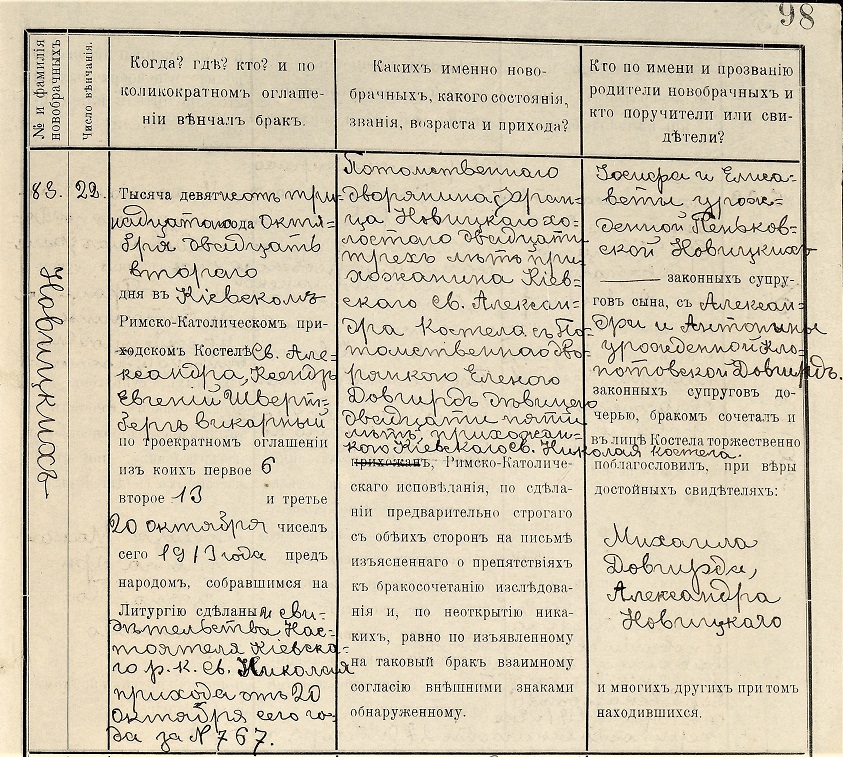 98
№ и фамилія
новобрачныхъ
Число вѣнчанія.
Когда? гдѣ? кто? и по
коликократномъ оглаше-
ніи вѣнчалъ бракъ.
Какихъ именно ново-
брачныхъ, какого состоянія,
званія, возраста и прихода?
Кто по имени и прозванію
родители новобрачныхъ и
кто поручители или сви-
дѣтели?
83.
Новицкихъ
22.
Тысяча девятисотъ три-
надцатаго года Октя-
бря двадцать
второго
дня въ Кіевскомъ
Римско-Католическомъ при-
ходскомъ Костелѣ Св. Але-
ксандра, Ксендзъ
Евгеній Шверт-
бергъ викарный
по троекратномъ оглашеніи
изъ коихъ первое 6
второе 13 и третье
20 октября чиселъ
сего 1913 года предъ
народомъ, собравшимся на
Литургію сдѣланыи сви-
дѣтельства Нас-
тоятеля Кіевска-
го р. к. Св. Николая
прихода отъ 20
октября сего го-
да за N 767.
Потомственного
дворянина Фран-
ца Новицкаго хо-
лостаго двадцати
трехъ лѣтъ при-
хожанина Кіев-
скаго Св. Алексан-
дра Костела съ По-
томственною дво-
рянкою Еленою
Довгирдъ дѣвицею
двадцати пяти
лѣтъ, прихожан-
кою Кіевскаго Св. Николая костела.
прихожанъ, Римско-Католиче-
скаго исповѣданія, по сдѣла-
ніи предварительно строгаго
съ обѣихъ сторонъ на письмѣ
изъясненнаго о препятствіяхъ
къ бракосочетанію изслѣдова-
нія и, по неоткрытію ника-
кихъ, равно по изъявленному
на таковый бракъ взаимному
согласію внѣшними знаками
обнаруженному.
Іосифа и Елиса-
веты урож-
денной Пеньков-
ской Новицкихъ
законныхъ супру-
говъ сына, съ Алексан-
дра и Антонины
урожденной Кло-
потовской Довгирдъ.
законныхъ супруговъ до-
черью, бракомъ сочеталъ и
въ лицѣ Костела торжественно
поблагословилъ, при вѣры
достойныхъ свидѣтеляхъ:
Михаила
Довгирда,
Александра
Новицкаго
и многихъ другихъ при томъ
находившихся.